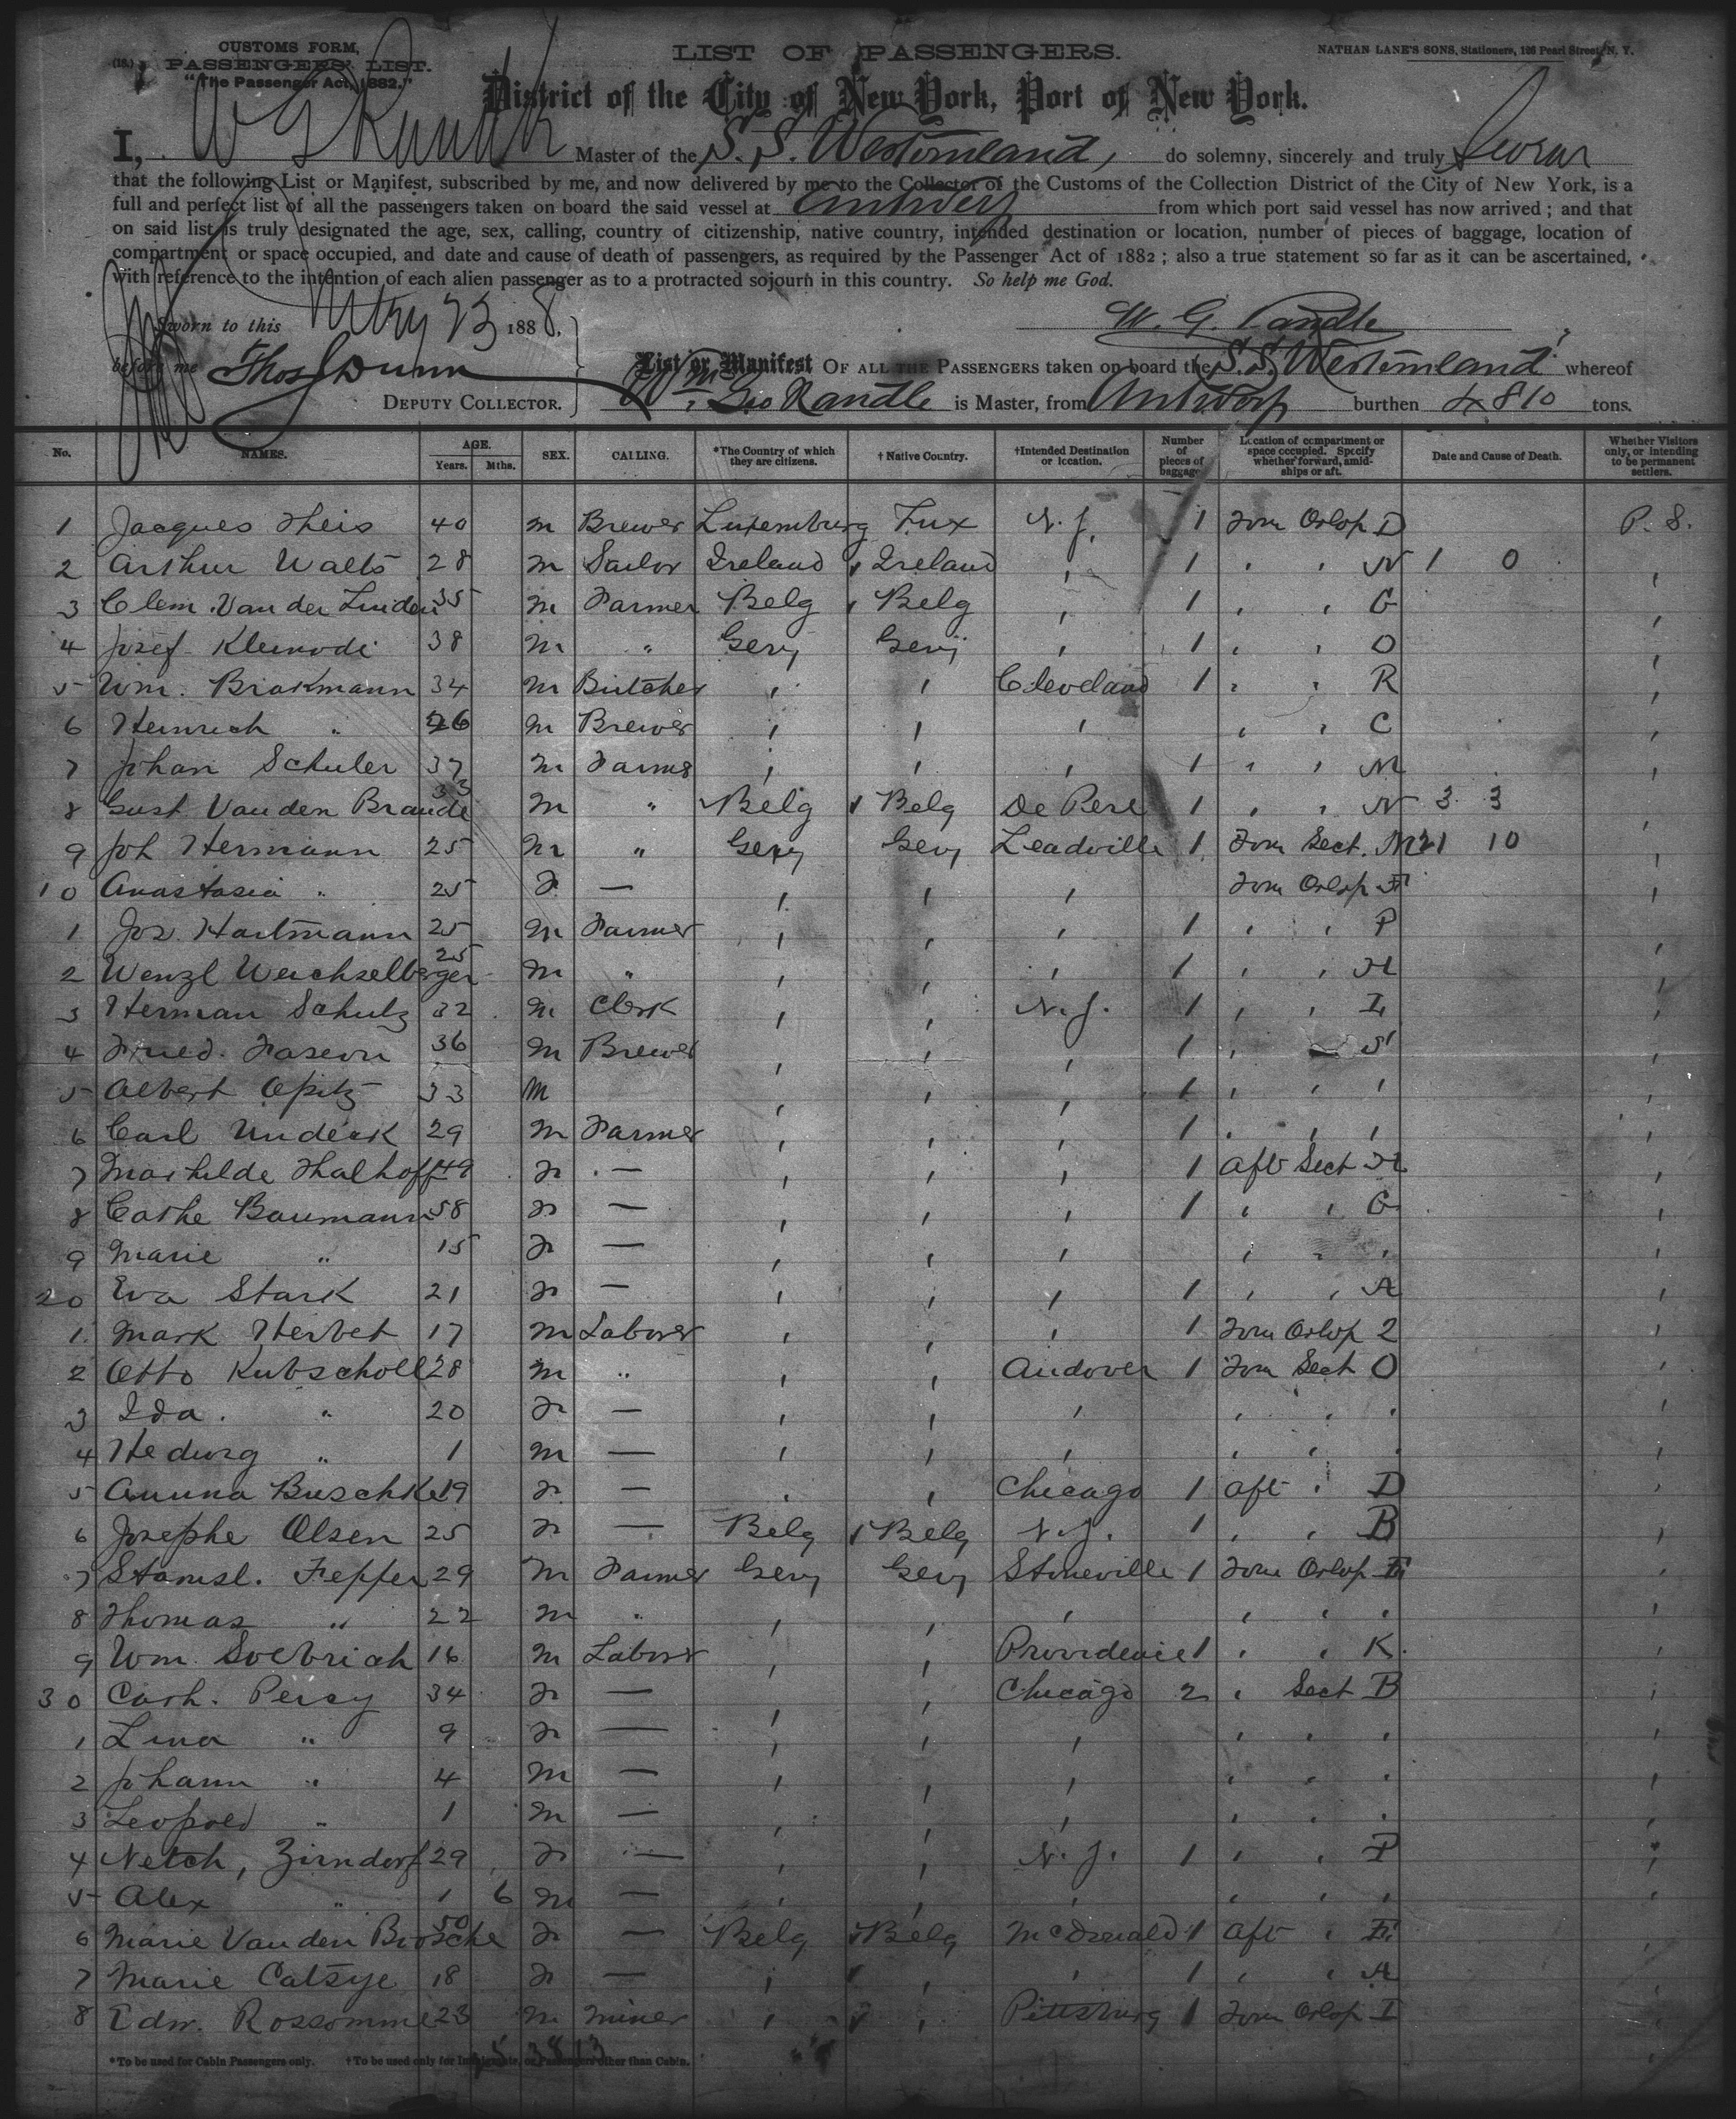 CUSTOMS FORM,
PASSENGERS' LIST.
"The Passenger Act, 1882."
LIST OF PASSENGERS.
NATHAN LANE'S SONS, Stationers, 126 Pearl Street, N. Y.
District of the City of New York, Port of New York.
I, W G Randle Master of the S. S. Westernland, do solemny, sincerely and truly Swear
that the following List or Manifest, subscribed by me, and now delivered by me to the Collector of the Customs of the Collection District of the City of New York, is a
full and perfect list of all the passengers taken on board the said vessel at Antwerp from which port said vessel has now arrived ; and that
on said list is truly designated the age, sex, calling, country of citizenship, native country, intended destination or location, number of pieces of baggage, location of
compartment or space occupied, and date and cause of death of passengers, as required by the Passenger Act of 1882 ; also a true statement so far as it can be ascertained,
with reference to the intention of each alien passenger as to a protracted sojourn in this country. So help me God.
Sworn to this May 23 1888,
W. G. Randle
before me Thos J Dunn
DEPUTY COLLECTOR.
List or Manifest OF ALL THE PASSENGERS taken on board the S. S. Westernland whereof
Wm. Geo Randle is Master, from Antwerp burthen 4810 tons.
No. NAMES. AGE. Years. Mths. SEX. CALLING. *The Country of which they are citizens. † Native Country. †Intended Destination or location. Number of pieces of baggage. Location of compartment or space occupied. Specify whether forward, amidships or aft. Date and Cause of Death. Whether Visitors only, or intending to be permanent settlers.
1 Jacques Theis 40 m Brewer Luxemburg Lux N. J. 1 Forw Orlop D P. S.
2 Arthur Walts 28 m Sailor Ireland Ireland , 1 , , N 1 0 ,
3 Clem. Van der Linden 35 m Farmer Belg Belg , 1 , , G ,
4 Josef Kleinodi 38 m " Gery Gery , 1 , , O ,
5 Wm. Brakmann 34 m Butcher , , Cleveland 1 , , R ,
6 Heinrich " 26 m Brewer , , , , , C ,
7 Johan Schuler 37 m Farmer , , , 1 , , M ,
8 Gust Van den Brande 33 m " Belg Belg De Pere 1 , , N 3 3 ,
9 Joh Hermann 25 m " Gery Gery Leadville 1 Forw Sect. M 21 10 ,
10 Anastasia " 25 F — , , , Forw Orlop F ,
1 Jos. Hartmann 25 m Farmer , , , 1 , , P ,
2 Wenzl Weichselberger 25 m " , , , 1 , , H ,
3 Herman Schulz 32 m Clerk , , N. J. 1 , , I ,
4 Fried. Faseon 36 m Brewer , , , 1 , S ,
5 Albert Opitz 33 m , , , 1 , , , ,
6 Carl Undeck 29 m Farmer , , , 1 , , , ,
7 Mathilde Thalhoff 49 F — , , , 1 Aft Sect H ,
8 Cathe Baumann 58 F — , , , 1 , , G ,
9 Marie " 15 F — , , , , , , ,
20 Eva Stark 21 F — , , , 1 , , A ,
1 Mark Herbet 17 m Laborer , , , 1 Forw Orlop 2 ,
2 Otto Kubscholl 28 m " , , Andover 1 Forw Sect O ,
3 Ida " 20 F — , , , , , , ,
4 Hedwig " 1 m — , , , , , , ,
5 Anna Buschke 19 F — , , Chicago 1 Aft , D ,
6 Josephe Olsen 25 F — Belg Belg N. J. 1 , , B ,
7 Stanisl. Fepper 29 m Farmer Gery Gery Stoneville 1 Forw Orlop E ,
8 Thomas " 22 m " , , , , , , ,
9 Wm. Soebrich 16 m Laborer , , Providence 1 , , K ,
30 Cath. Percy 34 F — , , Chicago 2 , Sect B ,
1 Lina " 9 F — , , , , , , ,
2 Johann " 4 m — , , , , , , ,
3 Leopold " 1 m — , , , , , , ,
4 Netch, Zirndorf 29 F — , , N. J. 1 , , P ,
5 Alex " 1 6 m — , , , , , , ,
6 Marie Van den Brosche 50 F — Belg Belg McDonald 1 Aft , E ,
7 Marie Catsye 18 F — , , , 1 , , A ,
8 Edw. Rossomme 23 m Miner , , Pittsburg 1 Forw Orlop I ,
*To be used for Cabin Passengers only. †To be used only for Immigrants, or Passengers other than Cabin.